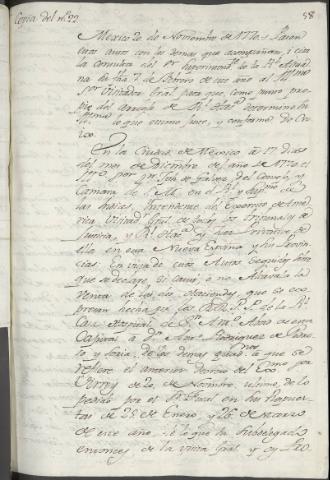 Copia del nº 22.
58
Mexico 20 de Noviembre de 1770. Pasen
estos autos con los demas que acompañan, i cita
la consulta del Sr. de la Rl.
na de fha. 7 de Febrero de este año al Illmo
Sor Visitador Gral para que, como punto pro-
pio del arreglo de Rl Hazda determine lo
que estime justo, y conforme. De Cro
ix.
En la Ciudad de Mexico à 17 dias
del mes de Diciembre del año de 1770 el
Yllmo Sor Dn Joseph de Galvez del Consejo, y
Camara de S. M. en el Rl y Supmo de
las Indias, Yntendente del Exercito de Ame-
rica, Visitador Gral de todos los Tribunales de
Justicia, y Rl Hazda y Juez Privativo de
ella en esta Nueva España y sus Provin-
cias. En vista de estos Autos seguidos sobre
que se declare, si causó, ó no Alcavala la
venta de las dos Haciendas, que se ex-
presan hecha por los PP. de la Rl
Casa Hospital de Sn Antº Abad de esta
Capital à Dn Antº Rodriguez de Pedro-
so y Soria, de los demas quadnos que se
refiere el anterior Decreto del Exmo Sor
Virrey de 20 de Noviembre ultimo, de lo
pedido por el Sr Fiscal en sus Respues-
tas de 25 de Enero y 26 de Marzo
de este año, de lo que ha Subdelegado
entonces de la visita Gral, y oy